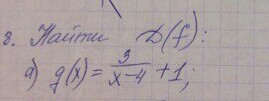 8. Найти D(f):
а) g(x) = 3/(x-4) + 1;